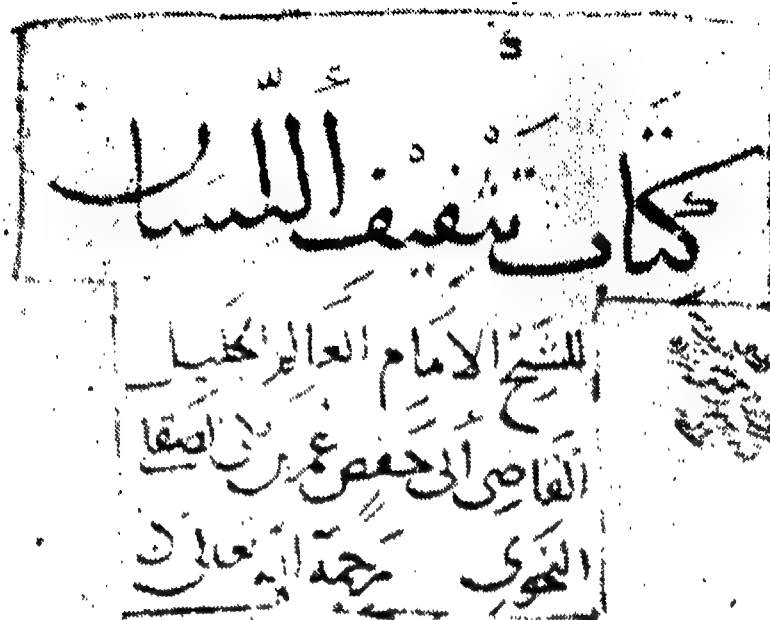 كتاب تثقيف اللسان
للشيخ الامام العالم
القاضى أبى حفص عمر بن
النحوى رحمة الله تعالى